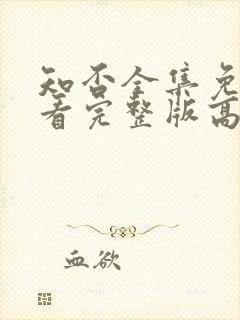 知否全集免
看完整版高
血欲